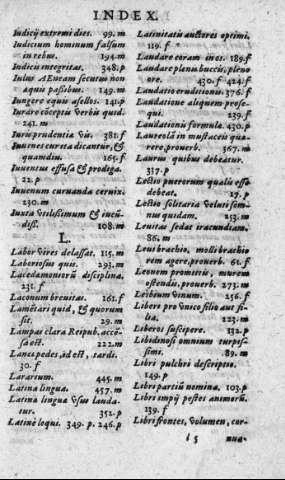 INDEX.
Iudicij extremi dies. 99. m
Iudicium hominum falsum
in rebus. 194. m
Iudicis integritas. 348. p
Iulus AEneam secutus non
æquis passibus. 149. m
Iungere equis asellos. 141. p
Iurare cōceptis verbis quid.
241. m
Iurisprudentiæ vis. 381. f
Iuuenes cur ita dicantur, &
quamdiu. 165. f
Iuuentus effusa & prodega.
22. p
Iuuenum curuanda ceruix.
230. m
Iuxta vilissimum & iucūdiss.
108. m
L.
Labor vires delassat. 115. m
Laboriosus quis. 293. m
Lacedæmoniorū disciplina.
231. f
Laconum breuitas. 161. f
Lametari quid, & quorum
sit. 29. m
Lampas clara Reipub. accēsa
est. 222. m
Lancs pedes, id est, tardi.
30. f
Lararium. 445. m
Latina lingua. 457. m
Latina lingua vsus laudatur.
352. p
Latinè loqui. 349. p. 246. p
Latinitatis auctores optimi.
119. f
Laudare coram inos. 189. f
Laudare plenis buccis, pleno
ore. 430. f 424. f
Laudatio eruditionis. 376. f
Laudatione aliquem prosequi.
239. f
Laudationis formulæ. 430. p
Laureolā in mustaceis quærere,
prouerb. 367. m
Laurus quibus debeatur.
317. p
Lectio puerorum qualis esse
debeat. 19. p
Lectio solitaria veluti somnus
quidam. 153. m
Leuitas sedat iracundiam.
86. m
Leui brachio, molli brachio
rem agere, prouerb. 61. f
Leonem promittis, murem
ostendis, prouerb. 273. m
Lexibum vinum. 256. f
Libere pro vnico filio aut filia.
123. m
Liberos suscipere. 132. p
Libidinosi omnium turpissimi.
89. m
Libri pulchri descriptio.
149. p
Libri partiū nomina. 103. p
Libri impij pestes animorū.
139. f
Libri frontes, volumen, cor-
l 5 nua-